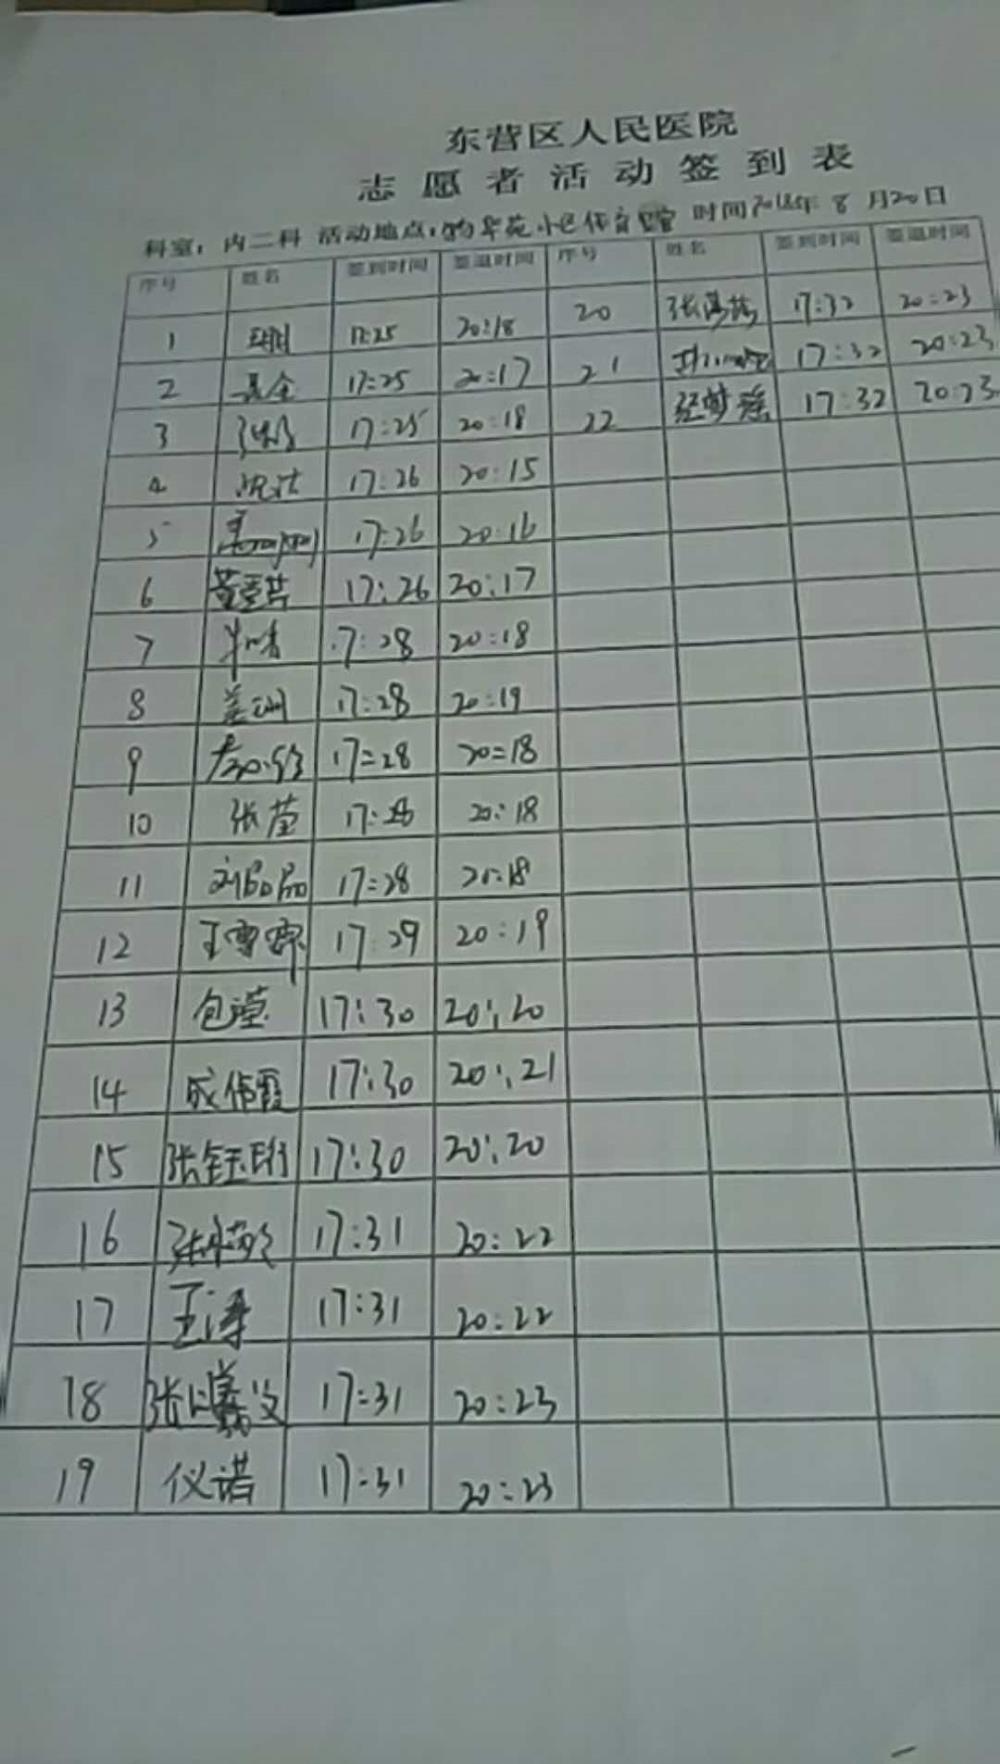 东营区人民医院
志愿者活动签到表
科室：内二科 活动地点： 小区体育 时间2018年 8 月20日
序号 姓名 签到时间 签退时间 序号 姓名 签到时间 签退时间
1 17:25 20:18 20 张 17:32 20:23
2 17:25 20:17 21 17:32 20:23
3 17:25 20:18 22 17:32 20:23
4 17:26 20:15
5 17:26 20:16
6 17:26 20:17
7 17:28 20:18
8 姜 17:28 20:19
9 17=28 20=18
10 张莹 17:28 20:18
11 刘晶晶 17:28 20:18
12 王雪 17:29 20:19
13 包 17:30 20:20
14 成伟霞 17:30 20:21
15 张钰珩 17:30 20:20
16 张 17:31 20:22
17 王涛 17:31 20:22
18 张曦文 17:31 20:23
19 仪诺 17:31 20:23